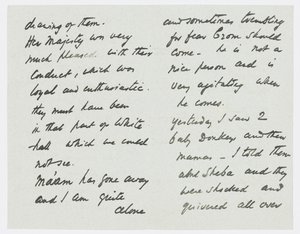 clearing of them.
Her Majesty was very
much pleased with their
conduct, which was
loyal and enthusiastic.
they must have been
in that part of White
hall which we could
not see.
Ma'am has gone away
and I am quite
alone
and sometimes trembling
for fear should
come - he is not a
nice person and is
very agitating when
he comes.
yesterday I saw 2
baby Donkeys and their
mamas - I told them
abt Sheba and they
were shocked and
quivered all over